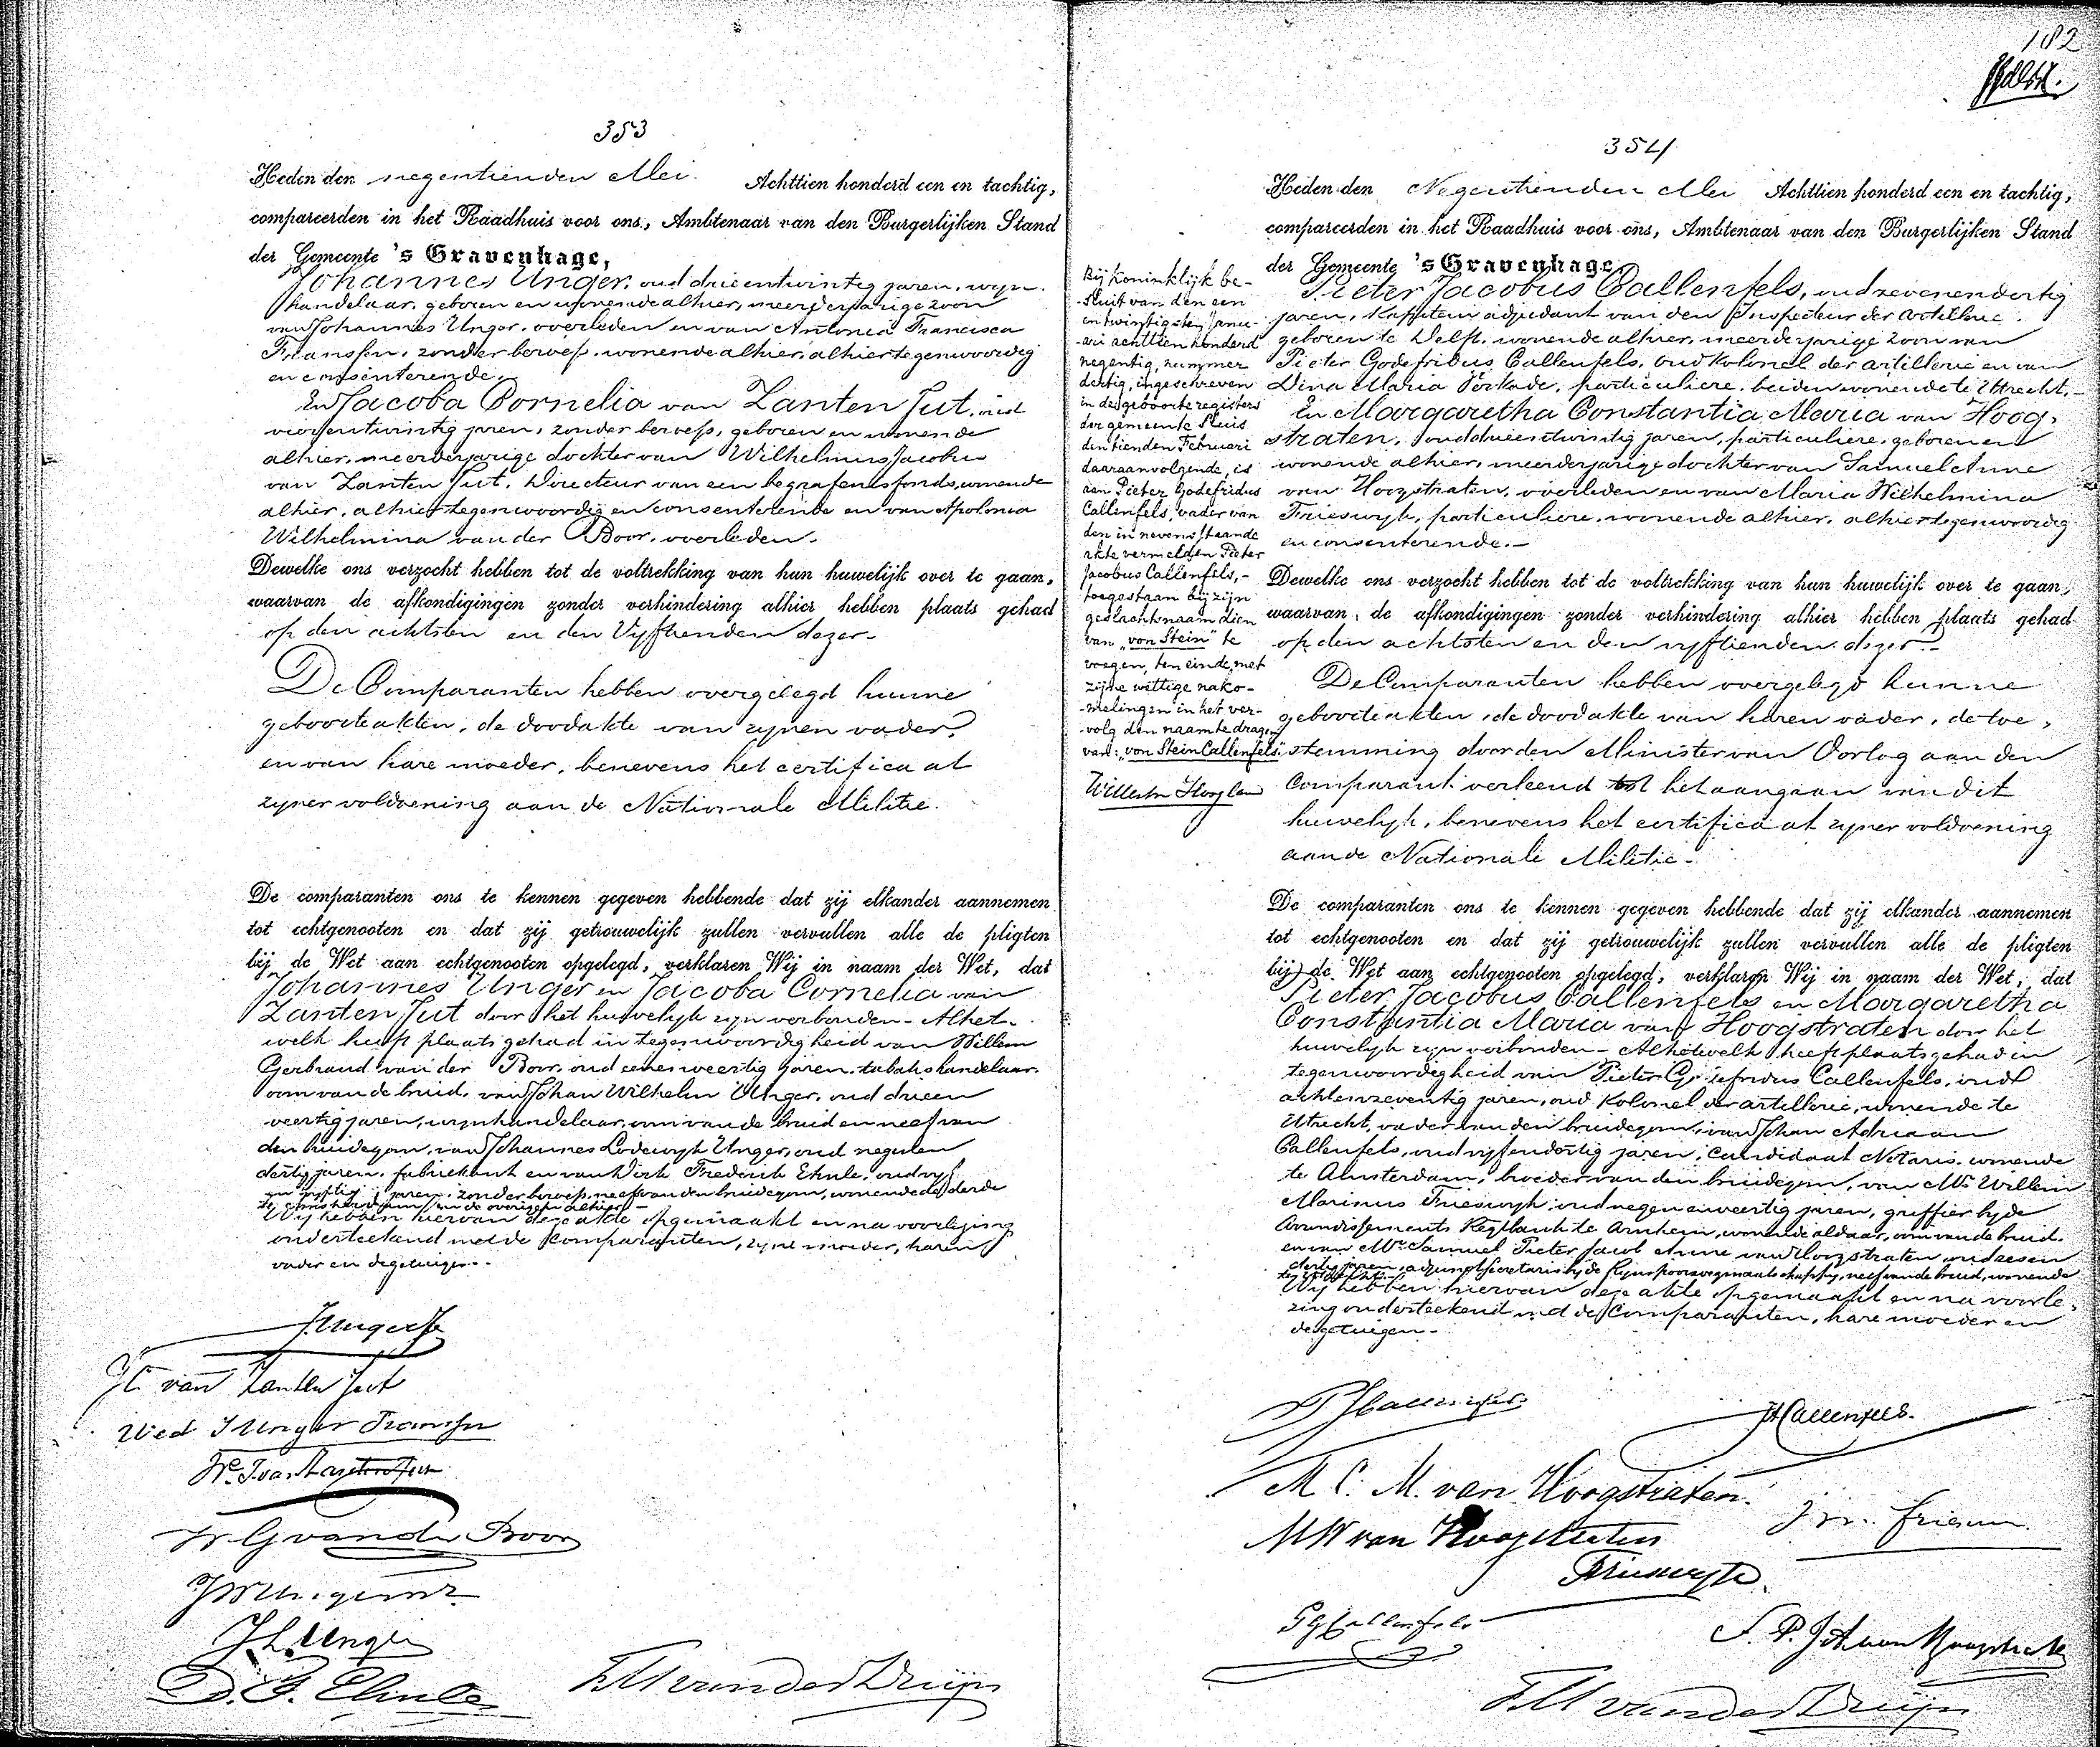 353
Heden den negentienden Mei Achttien honderd een en tachtig,
compareerden in het Raadhuis voor ons, Ambtenaar van den Burgerlijken Stand
der Gemeente 's Gravenhage,
Johannes Unger, oud drieentwintig jaren, wyn-
handelaar, geboren en wonende alhier, meerderjarige zoon
van Johannes Unger, overleden en van Antonia Francisca
Franssen, zonder beroep, wonende alhier, alhier tegenwoordig
en consenterende.
En Jacoba Cornelia van Zanten Jut, oud
vierentwintig jaren, zonder beroep, geboren en wonende
alhier, meerderjarige dochter van Wilhelmus Jacobus
van Zanten Jut, Directeur van een begrafenisfonds, wonende
alhier, alhier tegenwoordig en consenterende en van Apolonia
Wilhelmina van der Boor, overleden.
Dewelke ons verzocht hebben tot de voltrekking van hun huwelijk over te gaan,
waarvan de afkondigingen zonder verhindering alhier hebben plaats gehad
op den achtsten en den Vyftienden dezer.
De Comparanten hebben overgelegd hunne
geboorteakten, de doodakte van zynen vader
en van hare moeder, benevens het certificaat
zyner voldoening aan de Nationale Militie.
De comparanten ons te kennen gegeven hebbende dat zij elkander aannemen
tot echtgenooten en dat zij getrouwelijk zullen vervullen alle de pligten
bij de Wet aan echtgenooten opgelegd, verklaren Wij in naam der Wet, dat
Johannes Unger en Jacoba Cornelia van
Zanten Jut door het huwelyk zyn verbonden. Alhet-
welk heeft plaats gehad in tegenwoordigheid van Willem
Gerbrand van der Boor, oud eenenveertig jaren, tabakshandelaar,
oom van de bruid, van Johan Wilhelm Unger, oud drieen
veertig jaren, wynhandelaar, oom van de bruid en neef van
den bruidegom, van Johannes Lodewyk Unger, oud negenen
dertig jaren, fabriekant en van Dirk Frederik Ehnle, oud vyf
en vyftig jaren, zonder beroep, neef van den bruidegom, wonende de derde
te Amsterdam en de overigen alhier.
Wy hebben hiervan deze akte opgemaakt en na voorlezing
onderteekend met de Comparanten, zyne moeder, haren
vader en de getuigen.
J. Unger
JC van Zanten Jut
Wed J Unger Franssen
W. J. van Zanten Jut
W. G van der Boor
JW Unger
J L Unger
D. F. Ehnle
van der Druijn
182
354
Heden den Negentienden Mei Achttien honderd een en tachtig,
compareerden in het Raadhuis voor ons, Ambtenaar van den Burgerlijken Stand
der Gemeente 's Gravenhage,
Pieter Jacobus Callenfels, oud zevenendertig
jaren, Kapitein adjudant van den Inspecteur der Artillerie,
geboren te Delft, wonende alhier, meerderjarige zoon van
Pieter Godefridus Callenfels, oud kolonel der artillerie en van
Dina Maria Verkade, particuliere, beiden wonende te Utrecht.
En Margaretha Constantia Maria van Hoog-
straten, oud drieentwintig jaren, particuliere, geboren en
wonende alhier, meerderjarige dochter van Samuel Anne
van Hoogstraten, overleden en van Maria Wilhelmina
Frieswyk, particuliere, wonende alhier, alhier tegenwoordig
en consenterende.
Dewelke ons verzocht hebben tot de voltrekking van hun huwelijk over te gaan,
waarvan de afkondigingen zonder verhindering alhier hebben plaats gehad
op den achtsten en den vyftienden dezer.
De Comparanten hebben overgelegd hunne
geboorteakten, de doodakte van haren vader, de toe-
stemming door den Minister van Oorlog aan den
Comparant verleend tot het aangaan van dit
huwelyk, benevens het certificaat zyner voldoening
aan de Nationale Militie.
De comparanten ons te kennen gegeven hebbende dat zij elkander aannemen
tot echtgenooten en dat zij getrouwelijk zullen vervullen alle de pligten
bij de Wet aan echtgenooten opgelegd, verklaren Wij in naam der Wet, dat
Pieter Jacobus Callenfels en Margaretha
Constantia Maria van Hoogstraten door het
huwelyk zyn verbonden. Alhetwelk heeft plaats gehad in
tegenwoordigheid van Pieter Godefridus Callenfels, oud
achtenzeventig jaren, oud Kolonel der artillerie, wonende te
Utrecht, vader van den bruidegom, van Johan Adriaan
Callenfels, oud vyfendertig jaren, Candidaat Notaris, wonende
te Amsterdam, broeder van den bruidegom, van Mr. Willem
Marinus Frieswyk, oud negenenveertig jaren, griffier by de
Arrondissements Regtbank te Arnhem, wonende aldaar, oom van de bruid,
en van Mr. Samuel Pieter Jacob Anne van Hoogstraten oud zesen
dertig jaren, adjunct secretaris by de Rynspoorwegmaatschappy, neef van de bruid, wonende
te Utrecht.
Wy hebben hiervan deze akte opgemaakt en na voorle-
zing onderteekend met de Comparanten, hare moeder en
de getuigen.
Bij koninklijk be-
sluit van den een
en twintigsten Janu-
ari achttien honderd
negentig, nummer
dertig, ingeschreven
in de geboorteregisters
der gemeente Sluis
den tienden Februari
daaraanvolgende, is
aan Pieter Godefridus
Callenfels, vader van
den in nevenstaande
akte vermelden Pieter
Jacobus Callenfels,
toegestaan bij zijn
geslachtsnaam dien
van "von Stein" te
voegen, ten einde, met
zijne wettige nako-
melingen in het ver-
volg den naam te dragen
van: "von Stein Callenfels"
PJ Callenfels
JA Callenfels.
M. C. M. van Hoogstraten.
MW van Hoogstraten
Frieswyk
PG Callenfels
S. P. J. A. van Hoogstraten
van der Druijn